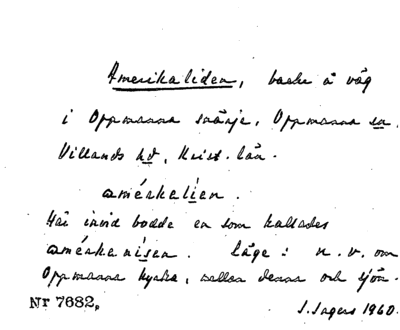 Amerikaliden, backe å väg
i Oppmanna svänje, Oppmanna sn.
Villands hd, Krist. län.
améskelien.
Här invid bodde en som kallades
améskanisen. Läge: n.v. om
Oppmanna kyrka, mellan denna och sjön.
Nr 7682, I. Ingers 1960.